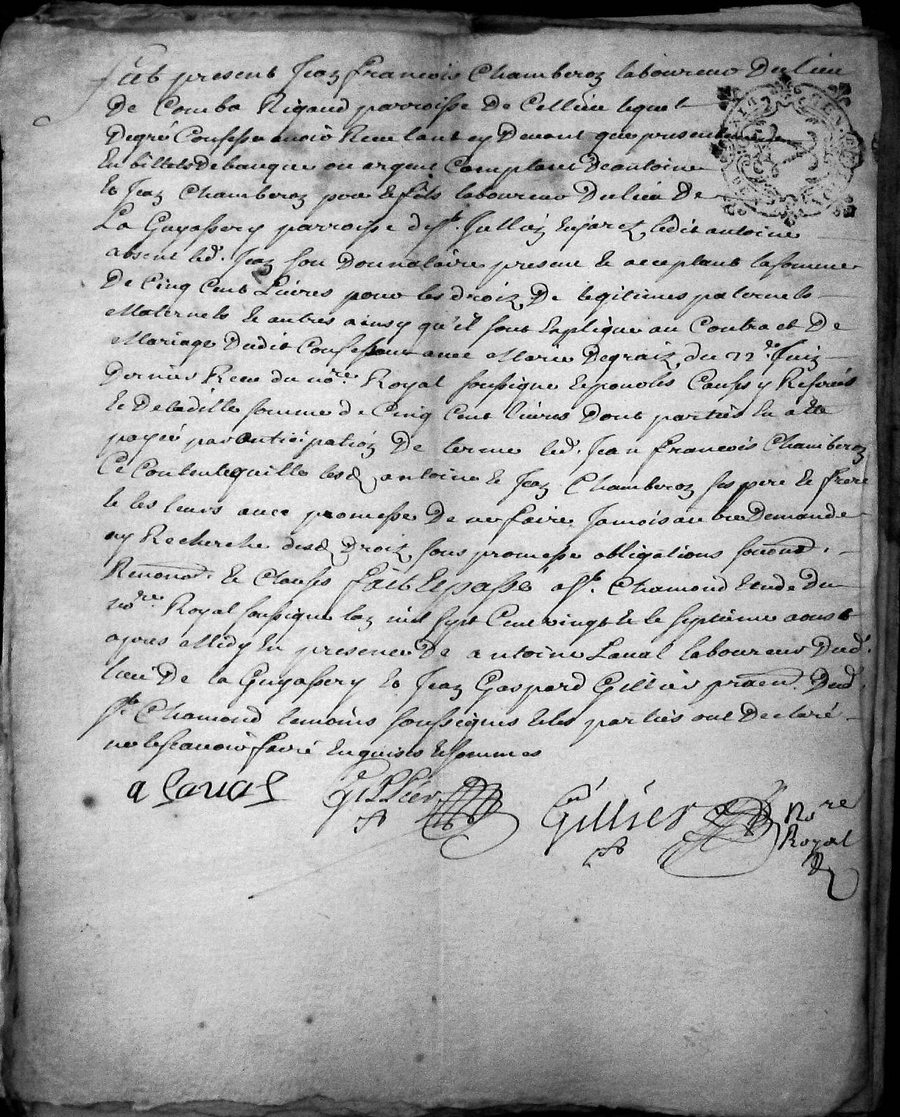 fut present Jean francois Chamberon laboureur du lieu
De Comba Rigaud parroisse de Cellieu lequel
Degré Confesse avoir Receu tant cy Devant que presentement
En billets De banque ou argent Comptant De antoine
& Jean Chamberon pere & fils laboureur du lieu De
La Guyassery parroisse de St. Jullien en Jarez ledit antoine
absent led. Jean son Donnataire present & acceptant la somme
De Cinq Cent Livres pour les droix De legitimes paternels
Maternels & autres ainsy qu'il sont Expliqué au Contract De
Mariage Dudit Confessant avec Marie Degraix du 22e. Juin
Dernier Receu du nore. Royal soussigné
& De laditte somme de Cinq Cent livres Dont partie à Esté
payée par anticipation De terme led. Jean francois Chamberon
Ce Contente quitte lesd antoine & Jean Chamberon ses pere & frere
& les leurs avec promesse De ne faire Jamois autre Demande
ny Recherche desd Droix sous promesse obligations
& Clauses fait & passé a St. Chamond Etude du
nore. Royal soussigné lan mil sept Cent vingt & le septieme aoust
apres Midy En presence De antoine Laval laboureur Dud.
lieu De La Guyassery & Jean Gaspard Gillier praticn. Dud.
St. Chamond temoins soussignés & les parties ont Declaré
ne le scavoir faire Enquis & sommes
a Laval Gillier Gillier Nore
Royal